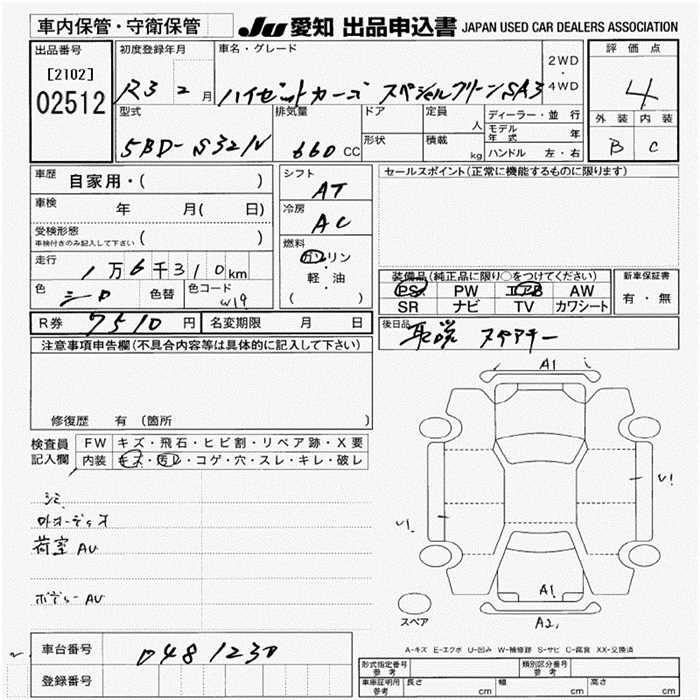 車内保管・守衛保管
JU 愛知 出品申込書 JAPAN USED CAR DEALERS ASSOCIATION
出品番号
[2102]
02512
初度登録年月
R3 2 月
車名・グレード
ハイゼットカーゴ スペシャルクリーンSA3
2WD
・
4WD
評価点
4
外装 内装
B C
型式
5BD-S321V
排気量
660 CC
ドア
形状
定員
人
積載
kg
ディーラー・並行
モデル年式 年
ハンドル 左・右
車歴
自家用・( )
車検
年 月( 日)
受検形態
車検付きのみ記入して下さい ( )
走行
1万6千310km
色
シロ
色替
色コード
W19
シフト
AT
冷房
AC
燃料
ガソリン
・
軽・油
( )
セールスポイント(正常に機能するものに限ります)
装備品(純正品に限り○をつけてください)
PS PW エアB AW
SR ナビ TV カワシート
新車保証書
有・無
R券 7510 円
名変期限 月 日
後日品
取説 スペアキー
注意事項申告欄(不具合内容等は具体的に記入して下さい)
修復歴 有 (箇所 )
検査員
記入欄
FW キズ・飛石・ヒビ割・リペア跡・X要
内装 キズ・汚レ・コゲ・穴・スレ・キレ・破レ
シミ
荷室AU
ボデーAU
A1
U!
U!
A1
A2
スペア
A-キズ E-エクボ U-凹み W-補修跡 S-サビ C-腐食 XX-交換済
車台番号
0481230
登録番号
形式指定番号
参考
類別区分番号
参考
車庫証明用
参考
長さ cm
幅 cm
高さ cm